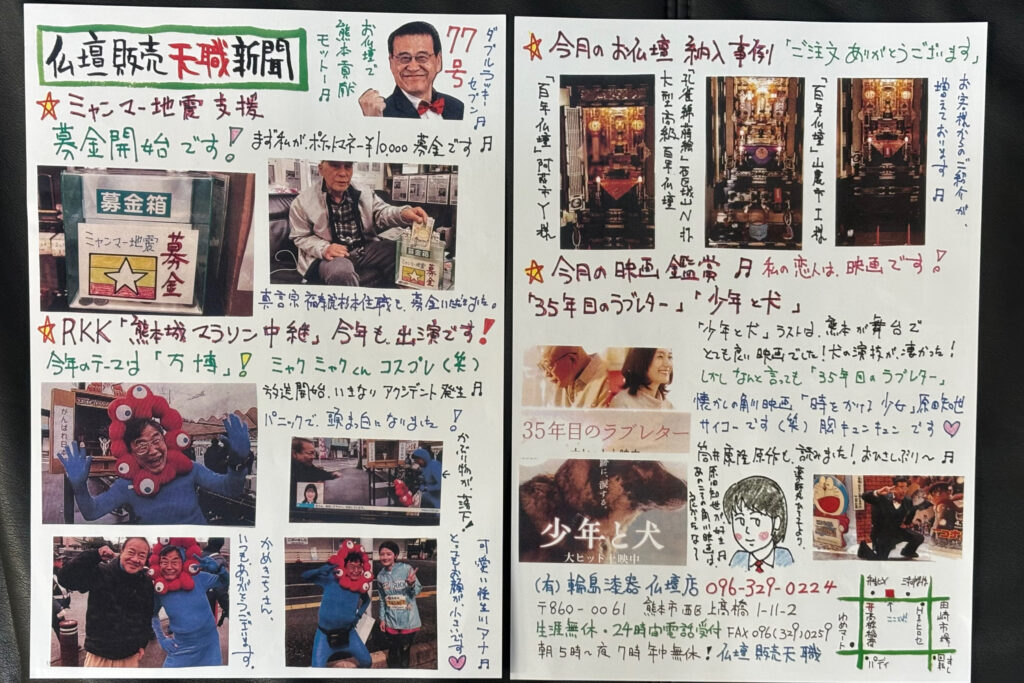 仏壇販売天職新聞
お仏壇で
熊本貢献
モットー♬
77号
ダブルラッキー
セブン♬
☆ミャンマー地震支援
募金開始です!
まず私が、ポケットマネー¥10,000募金です♬
募金箱
ミャンマー地震
募金
募金箱
ミャンマー地震
募金
☆RKK「熊本城マラソン中継」今年も出演です!
今年のテーマは「万博」!
ミャクミャクくんコスプレ(笑)
放送開始、いきなりアクシデント発生♬
パニックで、頭まっ白になりました!
かぶり物が、落下!
がんばれ日
かめきちさん、
いつもありがとうございます。
可愛い後生川アナ♬
とってもお顔が、小さいです
☆今月のお仏壇 納入事例「ご注文ありがとうございます」
お客様からのご紹介が、
増えております♬
「百年仏壇」山鹿市I様
大型高級百年仏壇
「百年仏壇」阿蘇市Y様
☆今月の映画鑑賞♬ 私の恋人は、映画です!
「35年目のラブレター」「少年と犬」
「少年と犬」ラストは、熊本が舞台で
とても良い映画でした!犬の演技が、凄かった!
しかしなんと言っても「35年目のラブレター」
懐かしの角川映画「時をかける少女」原田知世
サイコーです(笑)胸キュンキュンです
筒井康隆原作も、読みました!おひさしぶり〜♬
35年目のラブレター
大ヒット上映中
少年と犬
大ヒット上映中
原田知世が、好き♬
あのころの角川映画は、
(有)輪島漆器仏壇店 096-329-0224
〒860-0061 熊本市西区上高橋1-11-2
生涯無休・24時間電話受付 FAX096(329)0259
朝5時〜夜7時 年中無休!仏壇販売天職
田崎市場